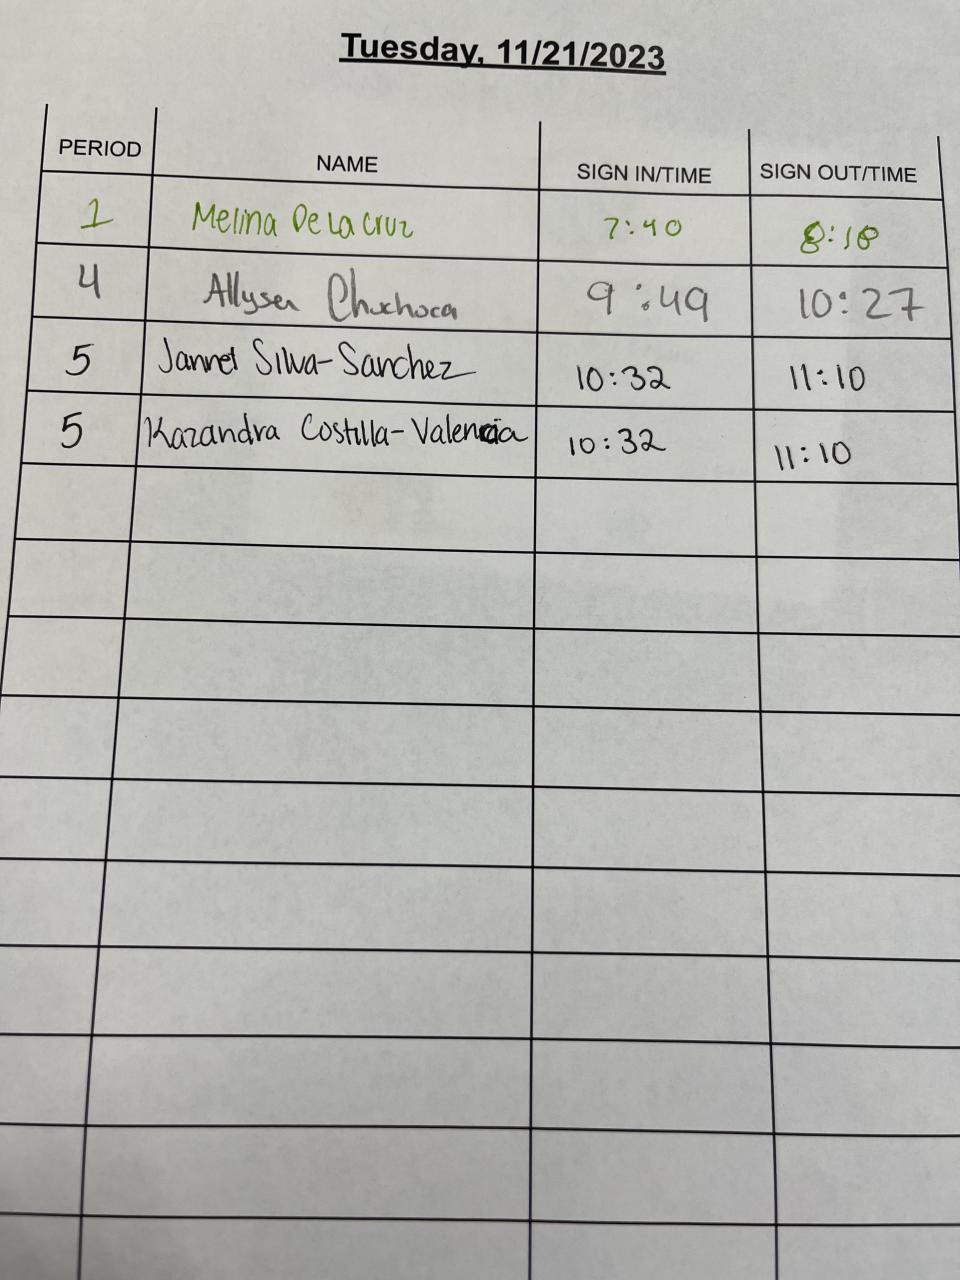 Tuesday, 11/21/2023
PERIOD NAME SIGN IN/TIME SIGN OUT/TIME
1 Melina De La Cruz 7:40 8:18
4 Allysen Chuchoca 9:49 10:27
5 Jannet Silva-Sanchez 10:32 11:10
5 Kazandra Costilla-Valencia 10:32 11:10